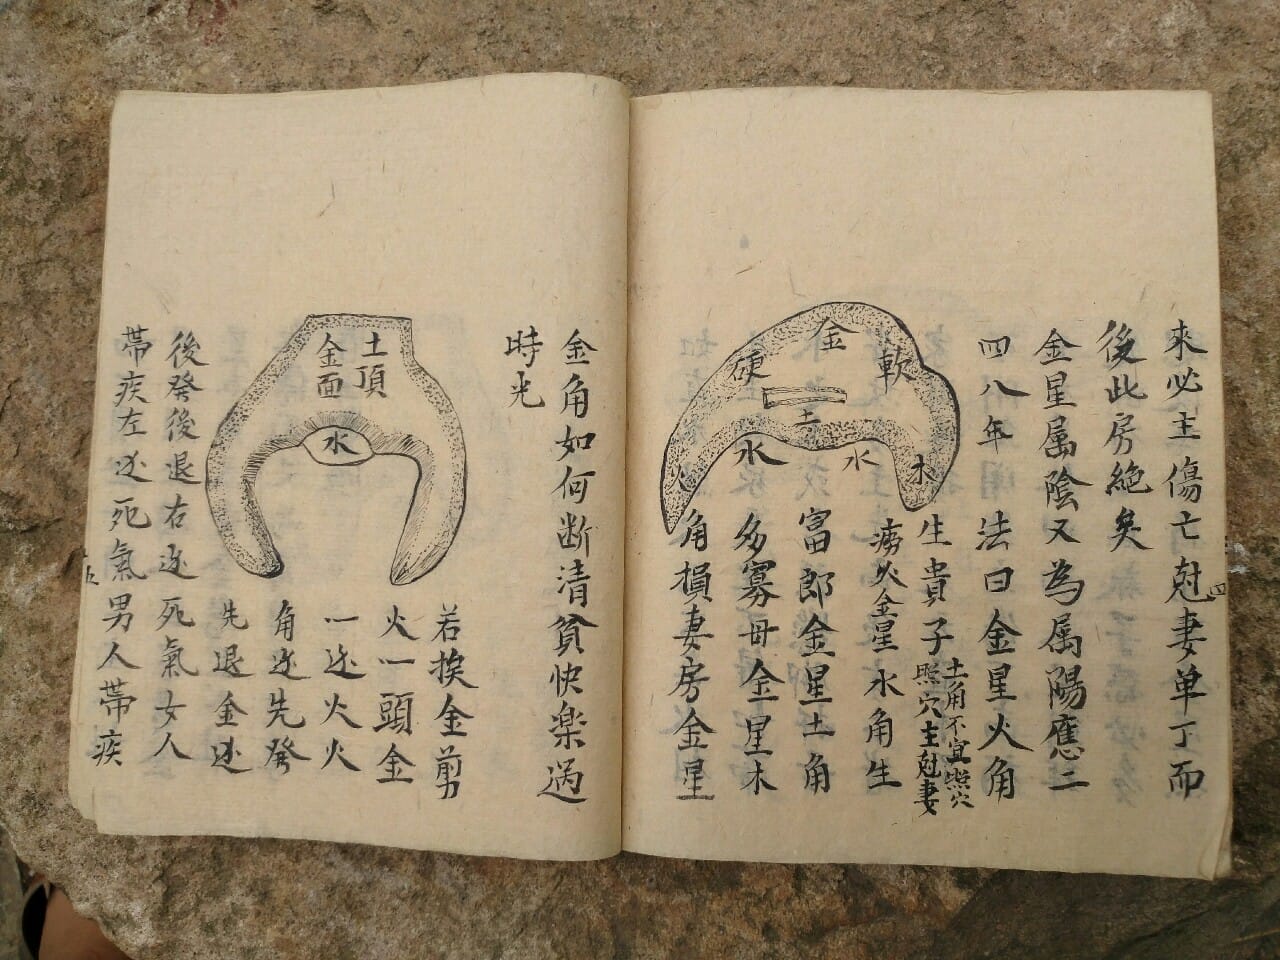 來必主傷亡尅妻单丁而
後此房絕矣
金星属陰又為属陽應二
四八年 法曰金星火角
生貴子
土角不宜照穴
照穴主尅妻
痨火金星水角生
富郎金星土角
多寡母金星木
角損妻房金星
金
硬
軟
土
水
水
火
木
四
金角如何断清貧快楽過
時光
土頂
金面
水
若挨金剪
火一头金
一边火火
角边先發
先退金边
後發後退右边死氣女人
帯疾左边死氣男人帯疾
五